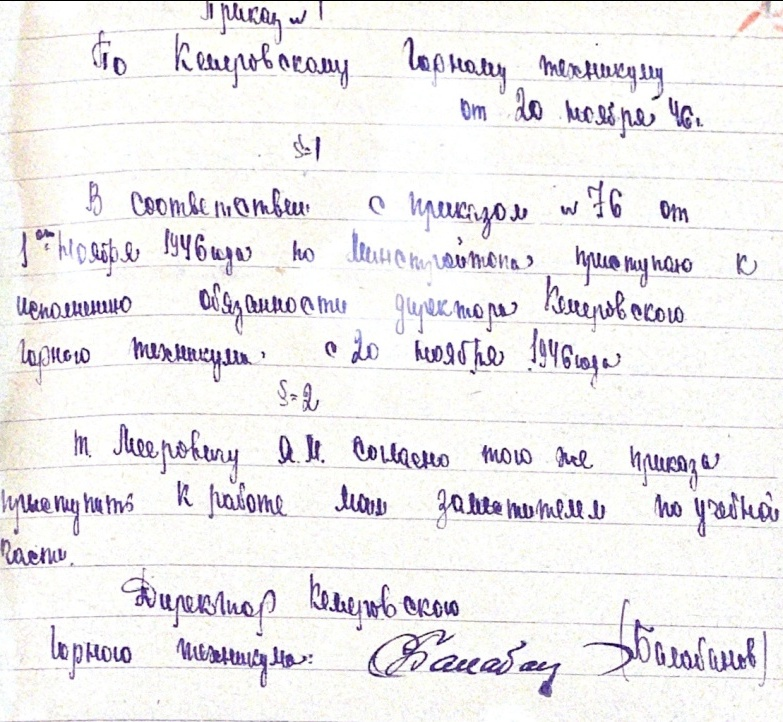 Приказ № 1
По Кемеровскому Горному техникуму
от 20 ноября 46г.
§=1
В соответствии с приказом № 76 от
1ого ноября 1946 года по Минстройтопа приступаю к
исполнению обязанности директора Кемеровского
горного техникума с 20 ноября 1946 года
§=2
т. Мееровичу А.М. согласно того же приказа
приступить к работе моим заместителем по учебной
части.
Директор Кемеровского
Горного техникума: Балабан (Балабанов)